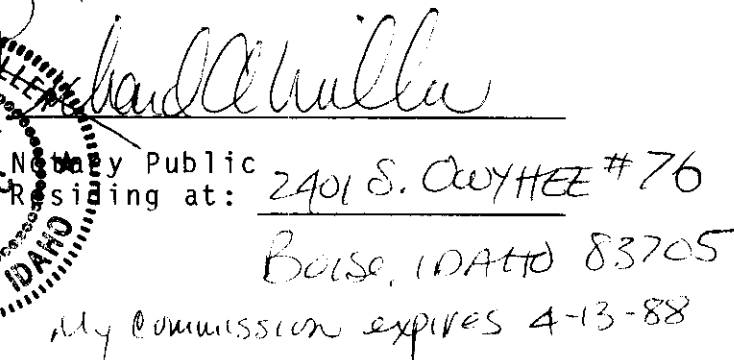 Richard A Miller
Notary Public
Residing at: 2401 S. OWYHEE #76
Boise, IDAHO 83705
My Commission expires 4-13-88
IDAHO